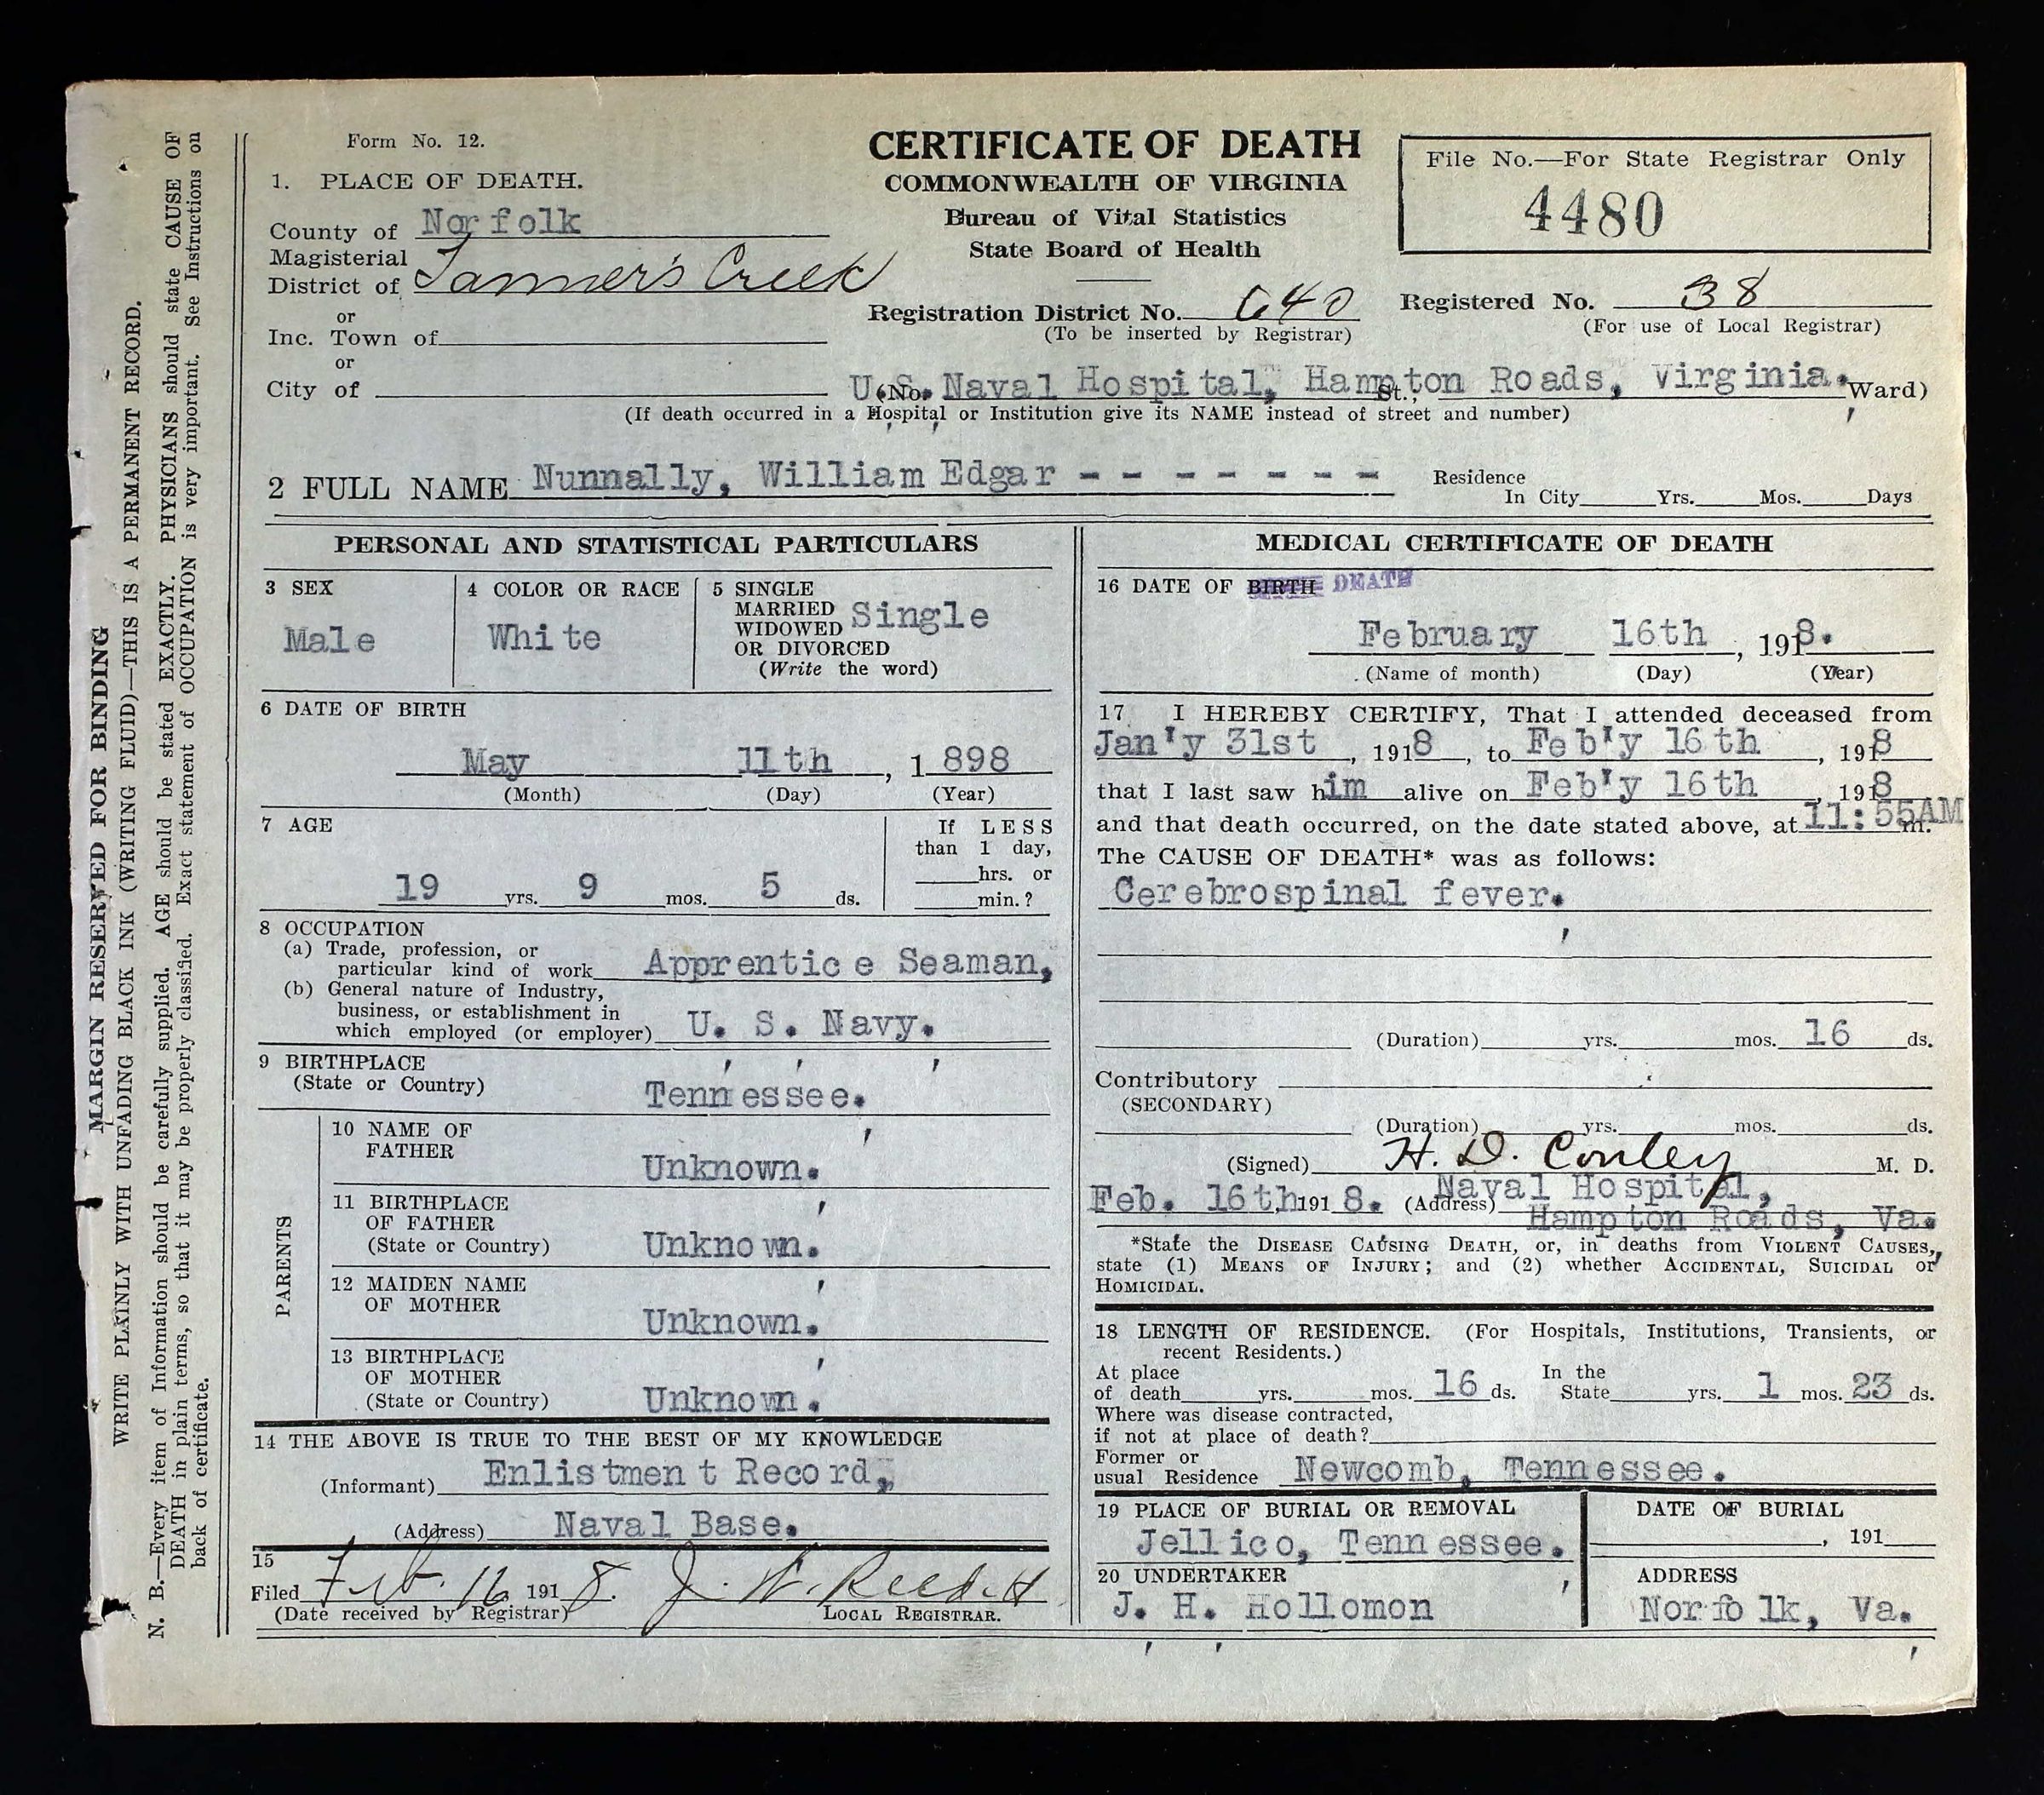 Form No. 12.
CERTIFICATE OF DEATH
COMMONWEALTH OF VIRGINIA
Bureau of Vital Statistics
State Board of Health
File No.—For State Registrar Only
4480
1. PLACE OF DEATH.
County of Norfolk
Magisterial
District of Tanner's Creek
or
Inc. Town of
or
City of
Registration District No. 640
(To be inserted by Registrar)
Registered No. 38
(For use of Local Registrar)
(No. U.S. Naval Hospital, Hampton Roads, Virginia. St.; Ward)
(If death occurred in a Hospital or Institution give its NAME instead of street and number)
2 FULL NAME Nunnally, William Edgar - - - - - - -
Residence
In City Yrs. Mos. Days
PERSONAL AND STATISTICAL PARTICULARS
3 SEX
Male
4 COLOR OR RACE
White
5 SINGLE
MARRIED
WIDOWED
OR DIVORCED
(Write the word)
Single
6 DATE OF BIRTH
May 11th, 1898
(Month) (Day) (Year)
7 AGE
19 yrs. 9 mos. 5 ds.
If LESS
than 1 day,
hrs. or
min.?
8 OCCUPATION
(a) Trade, profession, or
particular kind of work Apprentice Seaman,
(b) General nature of Industry,
business, or establishment in
which employed (or employer) U. S. Navy.
9 BIRTHPLACE
(State or Country) Tennessee.
PARENTS
10 NAME OF
FATHER Unknown.
11 BIRTHPLACE
OF FATHER
(State or Country) Unknown.
12 MAIDEN NAME
OF MOTHER Unknown.
13 BIRTHPLACE
OF MOTHER
(State or Country) Unknown.
14 THE ABOVE IS TRUE TO THE BEST OF MY KNOWLEDGE
(Informant) Enlistment Record,
(Address) Naval Base.
15
Filed Feb. 16 1918.
(Date received by Registrar) LOCAL REGISTRAR.
MEDICAL CERTIFICATE OF DEATH
16 DATE OF BIRTH DEATH
February 16th, 1918.
(Name of month) (Day) (Year)
17 I HEREBY CERTIFY, That I attended deceased from
Jan'y 31st, 1918, to Feb'y 16th, 1918
that I last saw him alive on Feb'y 16th, 1918
and that death occurred, on the date stated above, at 11:55AM m.
The CAUSE OF DEATH* was as follows:
Cerebrospinal fever.
(Duration) yrs. mos. 16 ds.
Contributory
(SECONDARY)
(Duration) yrs. mos. ds.
(Signed) H. D. Conley M. D.
Feb. 16th 1918. (Address) Naval Hospital,
Hampton Roads, Va.
*State the DISEASE CAUSING DEATH, or, in deaths from VIOLENT CAUSES,
state (1) MEANS OF INJURY; and (2) whether ACCIDENTAL, SUICIDAL or
HOMICIDAL.
18 LENGTH OF RESIDENCE. (For Hospitals, Institutions, Transients, or
recent Residents.)
At place
of death yrs. mos. 16 ds. In the
State yrs. 1 mos. 23 ds.
Where was disease contracted,
if not at place of death?
Former or
usual Residence Newcomb, Tennessee.
19 PLACE OF BURIAL OR REMOVAL
Jellico, Tennessee.
DATE OF BURIAL
, 191
20 UNDERTAKER
J. H. Hollomon
ADDRESS
Norfolk, Va.
MARGIN RESERVED FOR BINDING
WRITE PLAINLY WITH UNFADING BLACK INK (WRITING FLUID)—THIS IS A PERMANENT RECORD.
N. B.—Every item of Information should be carefully supplied. AGE should be stated EXACTLY. PHYSICIANS should state CAUSE OF
DEATH in plain terms, so that it may be properly classified. Exact statement of OCCUPATION is very important. See Instructions on
back of certificate.